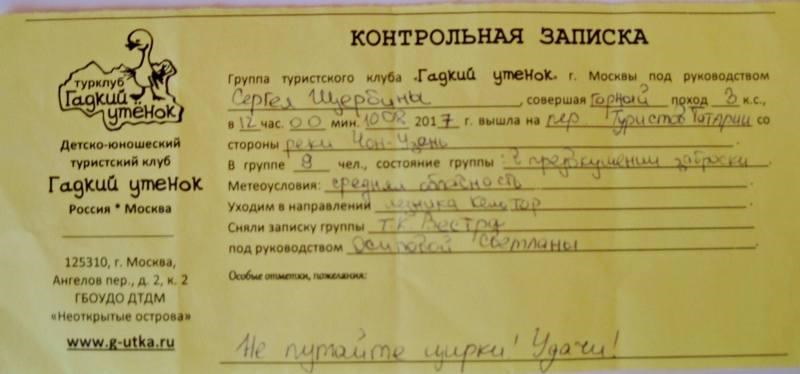 турклуб
Гадкий
утёнок
Детско-юношеский
туристский клуб
Гадкий утенок
Россия * Москва
125310, г. Москва,
Ангелов пер., д. 2, к. 2
ГБОУДО ДТДМ
«Неоткрытые острова»
www.g-utka.ru
КОНТРОЛЬНАЯ ЗАПИСКА
Группа туристского клуба «Гадкий утенок» г. Москвы под руководством
Сергея Щербины, совершая горный поход 3 к.с.,
в 12 час. 00 мин. 10.08 2017 г. вышла на пер Туристов Татарии со
стороны реки Чон-Узень.
В группе 9 чел., состояние группы: в предвкушении заброски.
Метеоусловия: средняя облачность.
Уходим в направлении ледника Кельтор.
Сняли записку группы т.к. Вестра
под руководством Осиповой Светланы.
Особые отметки, пожелания:
Не путайте цирки! Удачи!